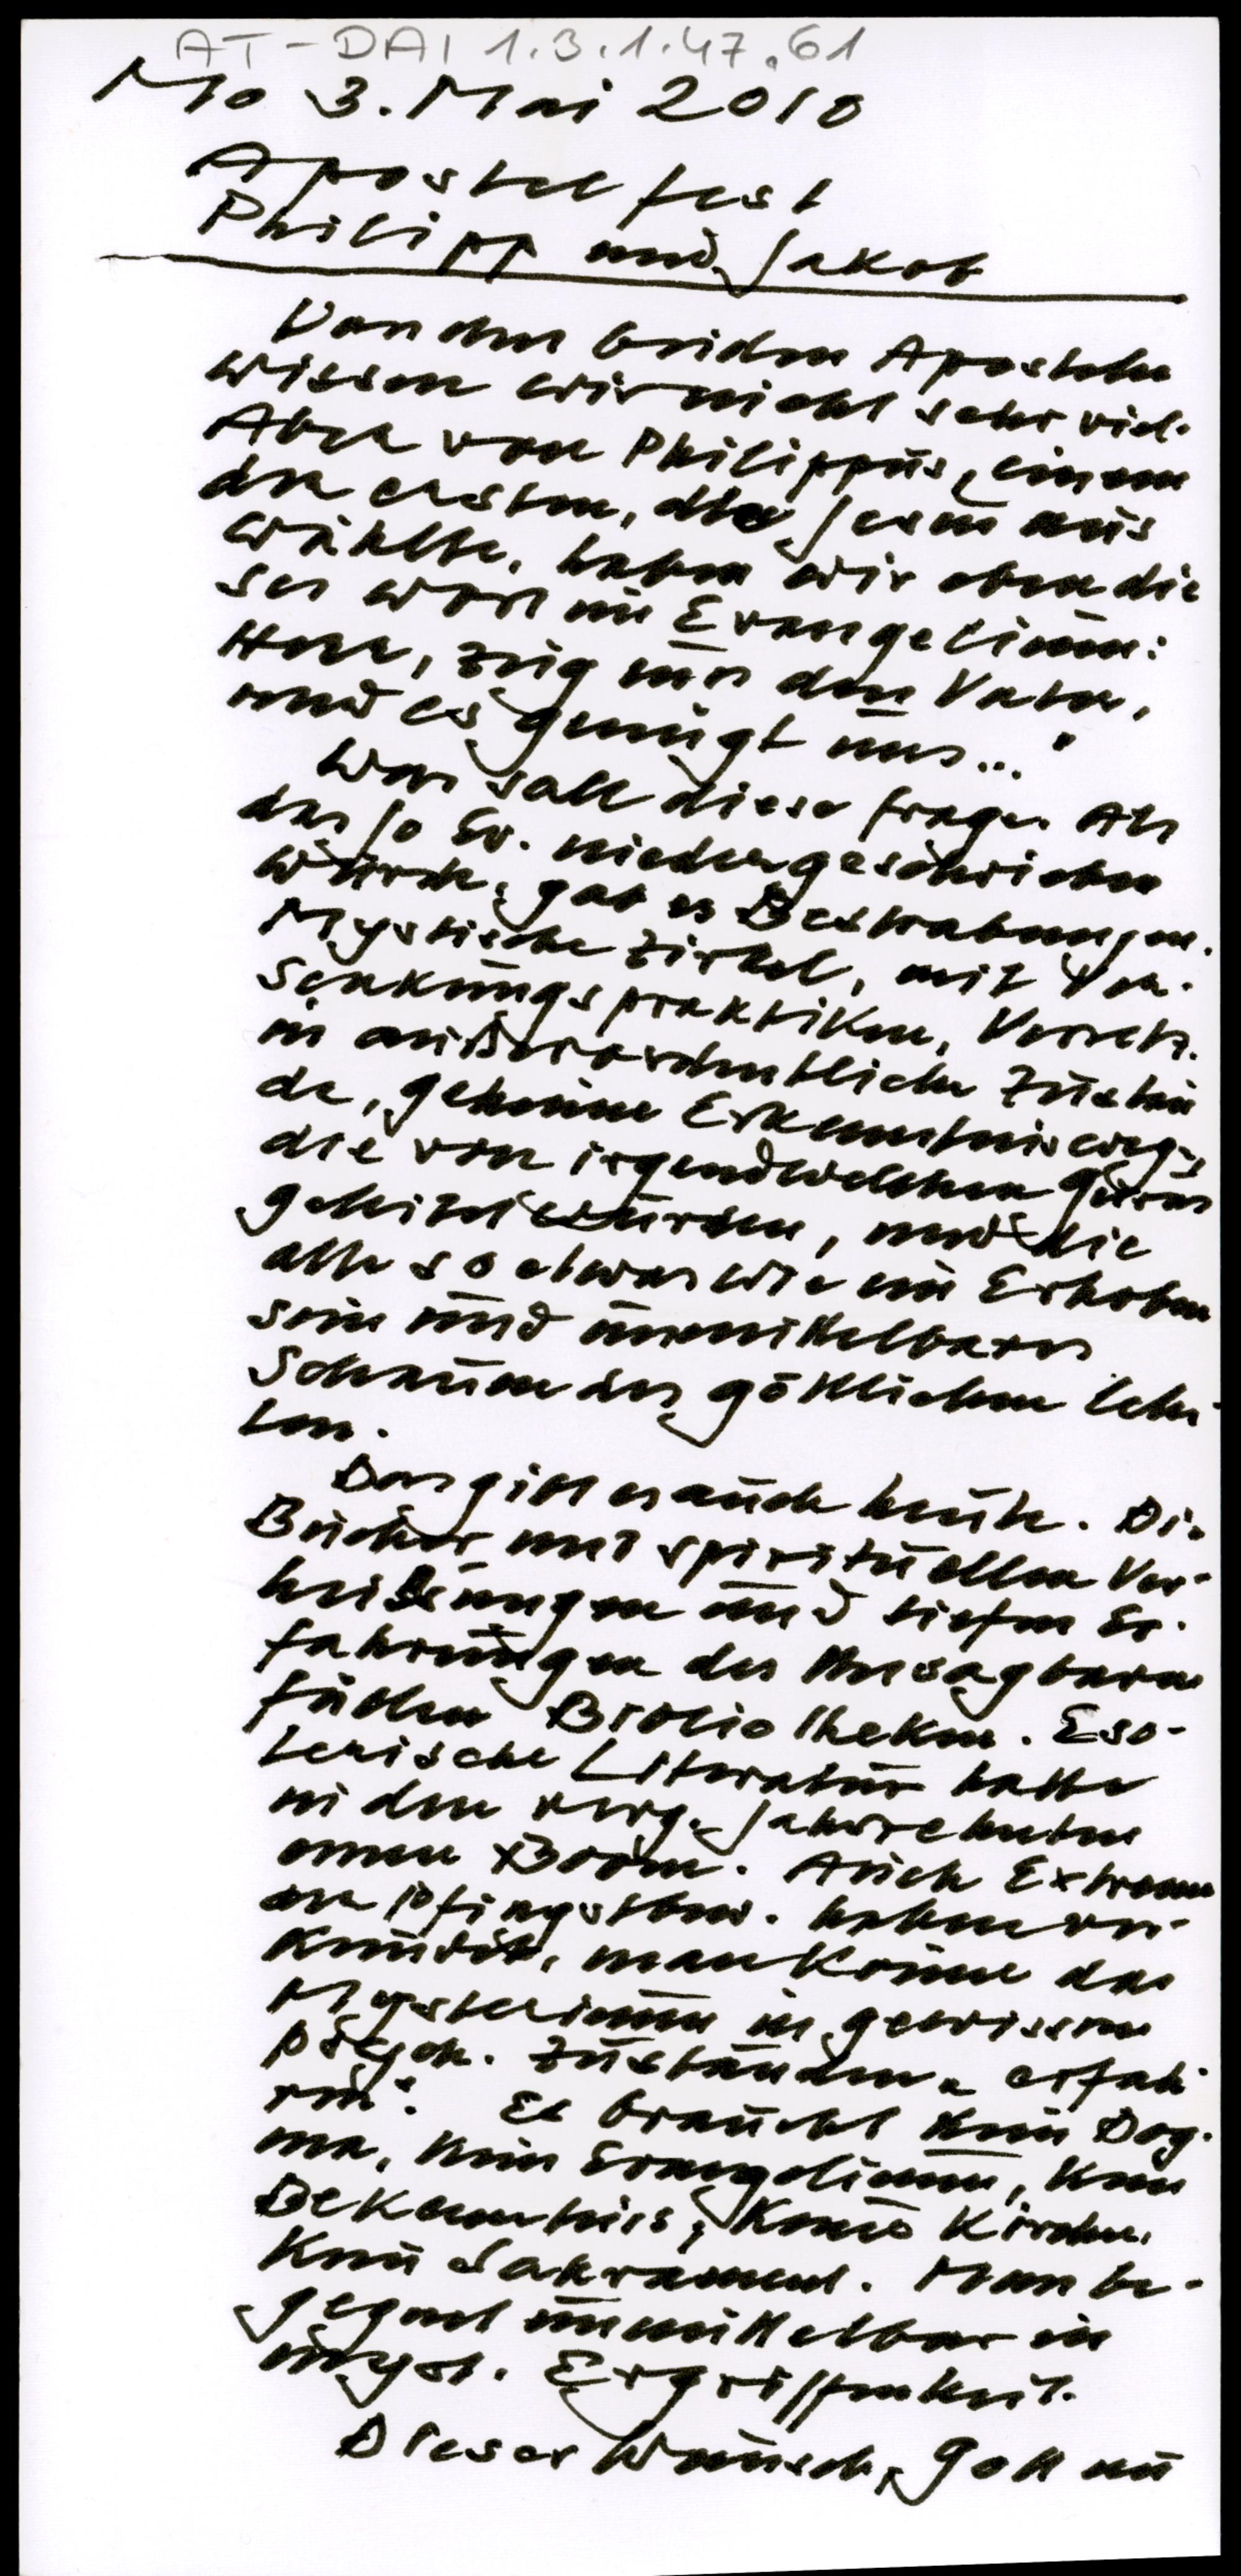 AT-DAI 1.3.1.47.61
Mo 3. Mai 2010
Apostelfest
Philipp und Jakob
Von den beiden Aposteln
wissen wir nicht sehr viel.
Aber von Philippus, einem
der ersten, die Jesus aus
wählte, haben wir eben die
ses Wort im Evangelium:
Herr, zeig uns den Vater,
und es genügt uns..."
Was soll diese Frage. Als
das Jo Ev. niedergeschrieben
wurde, gab es Bestrebungen.
Mystische Zirkel, mit Ver-
senkungspraktiken, Versetz.
in außerordentliche Zustän
de, geheime Erkenntniswege,
die von irgendwelchen Gurus
geleitet wurden, und die
alle so etwas wie ein Erhoben
sein und unmittelbares
Schauen des göttlichen lehr-
ten.
Das gibt es auch heute. Die
Bücher mit spirituellen Ver-
heißungen und tiefen Er-
fahrungen des Unsagbaren
füllen Bibliotheken. Eso-
terische Literatur hatte
in den verg. Jahrzehnten
einen Boom. Auch Extreme
der Pfingstbew. haben ver-
kündet, man könne das
Mysterium in gewissen
psych. Zuständen "erfah-
ren". Es braucht kein Dog-
ma, kein Evangelium, kein
Bekenntnis, keine Kirche,
kein Sakrament. Man be-
gegnet unmittelbar in
myst. Ergriffenheit.
Dieser Wunsch, Gott un